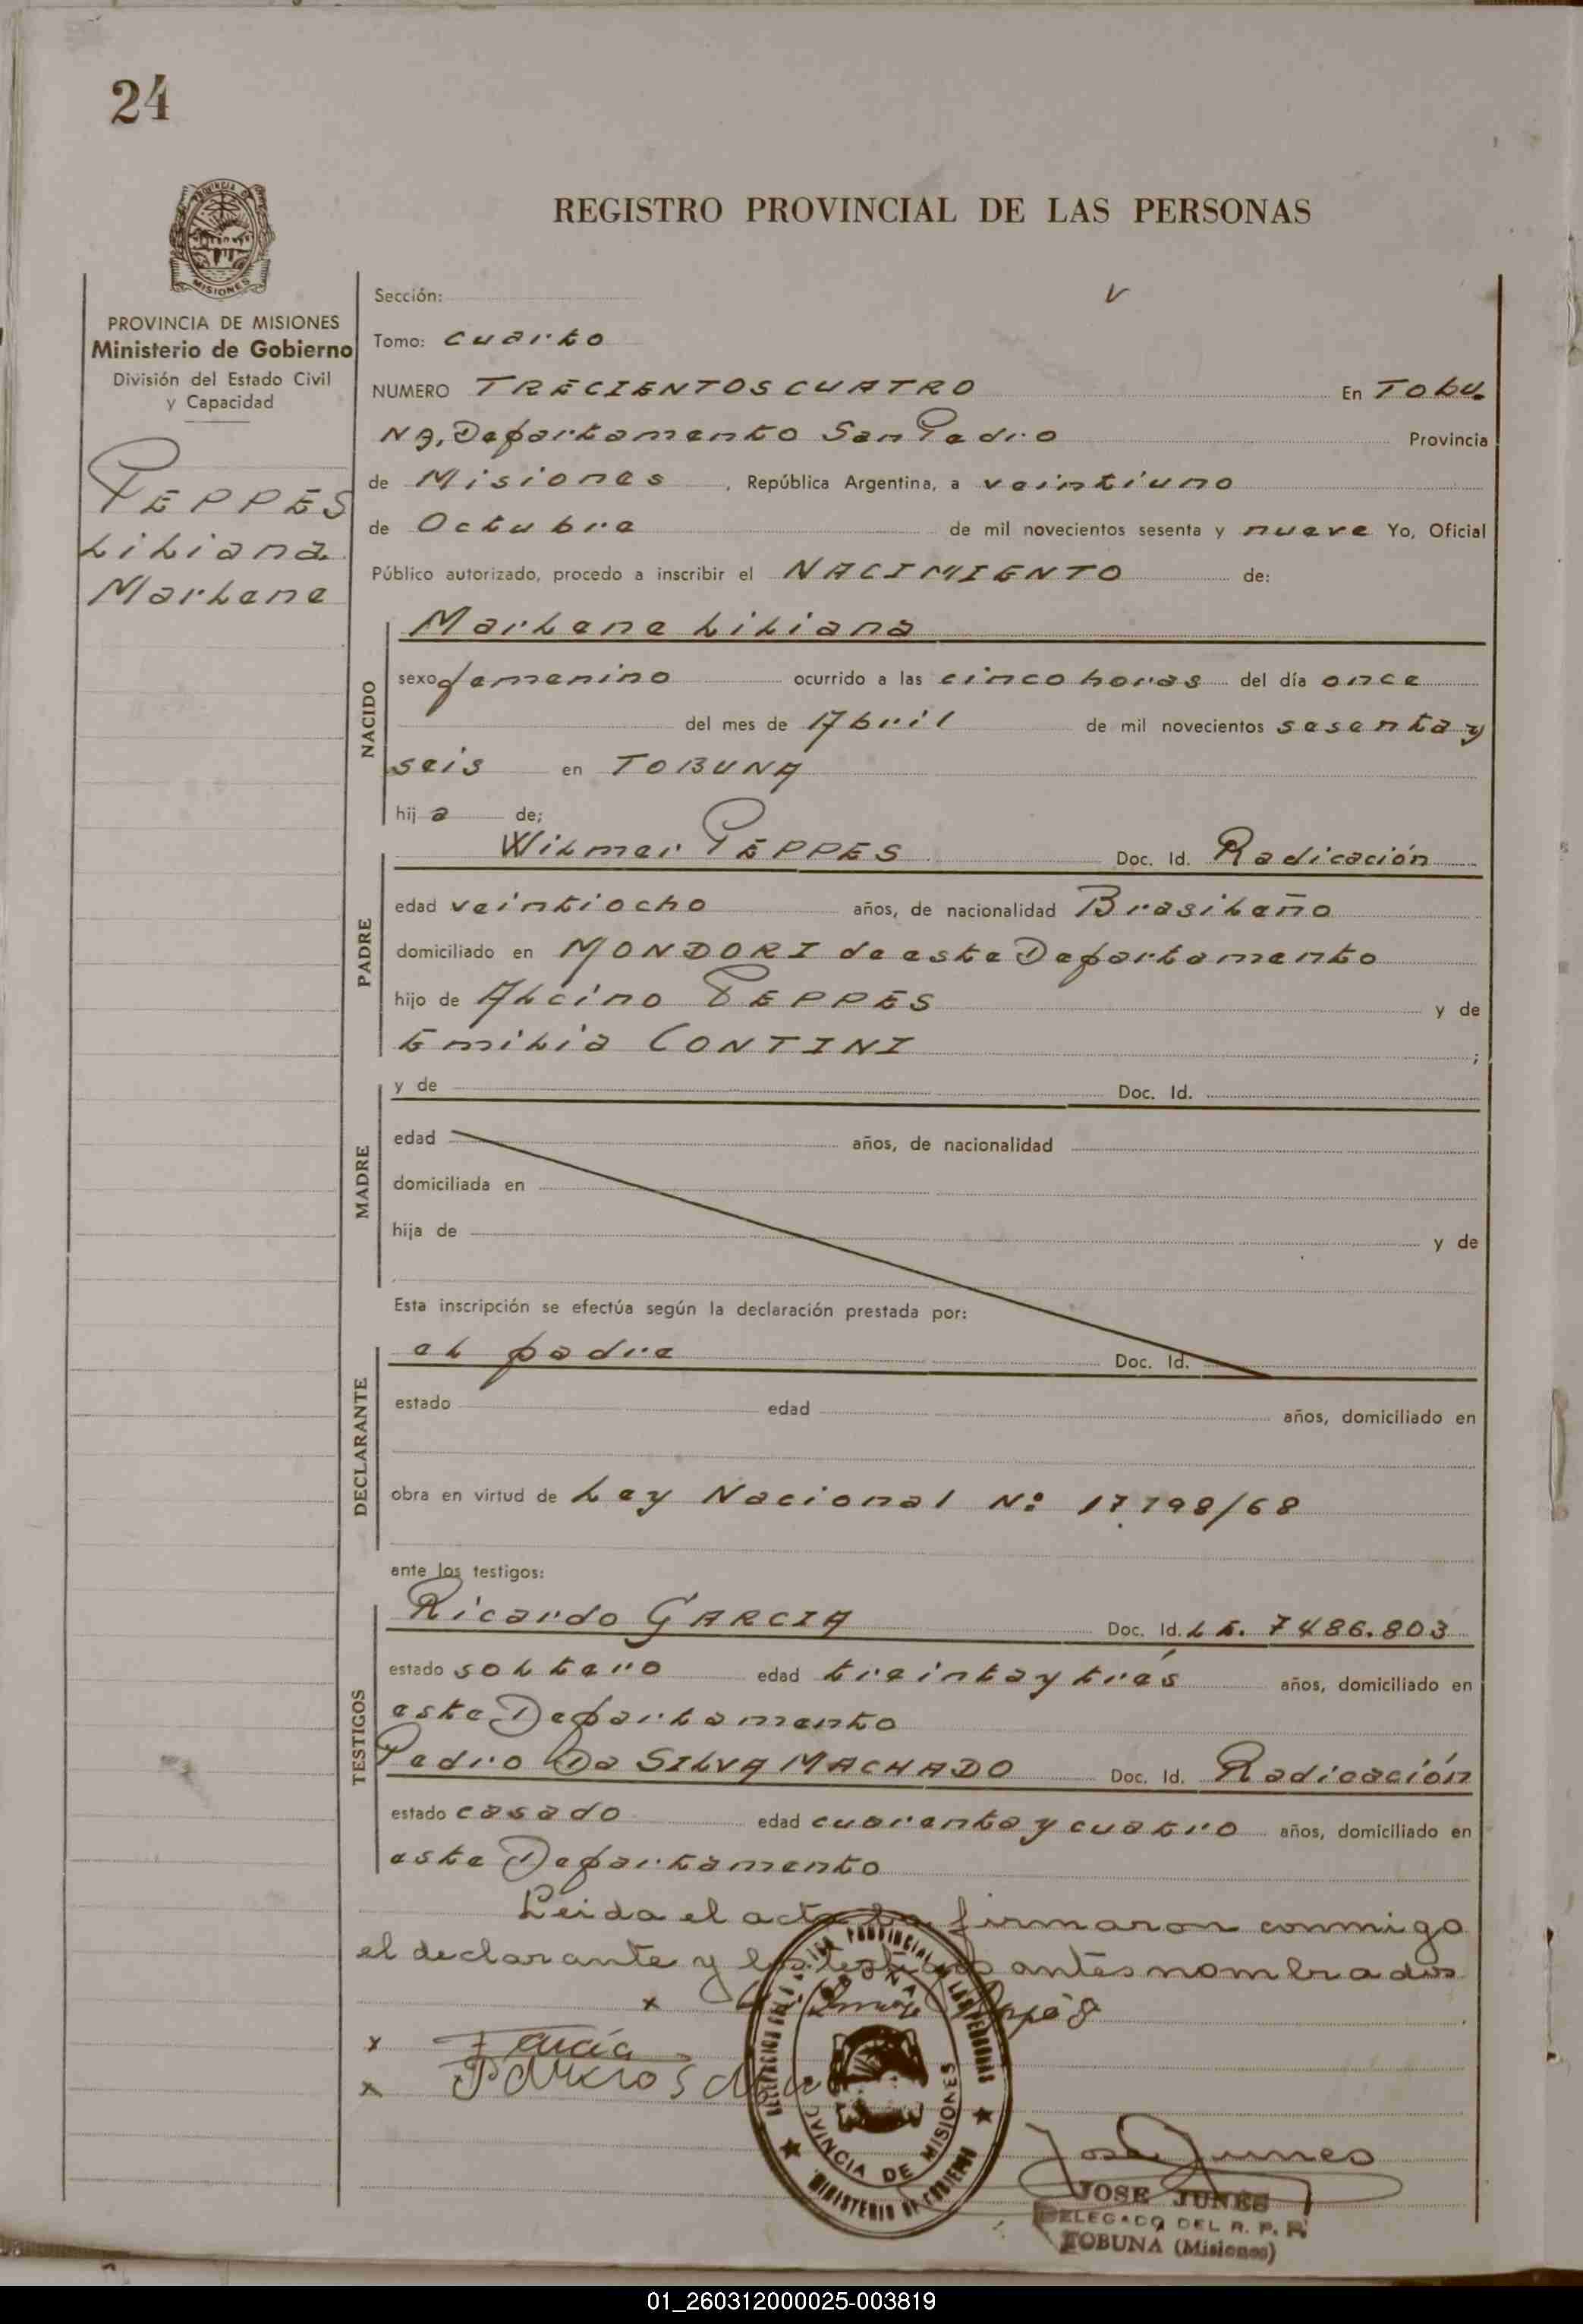 24
REGISTRO PROVINCIAL DE LAS PERSONAS
MISIONES
PROVINCIA DE MISIONES
Ministerio de Gobierno
División del Estado Civil
y Capacidad
PEPPES
Liliana
Marlene
Sección:
Tomo: cuarto
NUMERO TRECIENTOS CUATRO En Tobu.
NA, Departamento San Pedro Provincia
de Misiones, República Argentina, a veintiuno
de Octubre de mil novecientos sesenta y nueve Yo, Oficial
Público autorizado, procedo a inscribir el NACIMIENTO de:
NACIDO
Marlene Liliana
sexo femenino ocurrido a las cinco horas del día once
del mes de Abril de mil novecientos sesenta y
seis en TOBUNA
hij a de;
PADRE
Wilmer PEPPES Doc. Id. Radicación
edad veintiocho años, de nacionalidad Brasileño
domiciliado en MONDORI de este Departamento
hijo de Alcino PEPPES y de
Emilia CONTINI ;
MADRE
y de Doc. Id.
edad años, de nacionalidad
domiciliada en
hija de y de
Esta inscripción se efectúa según la declaración prestada por:
DECLARANTE
el padre Doc. Id.
estado edad años, domiciliado en
obra en virtud de Ley Nacional Nº 17.798/68
ante los testigos:
TESTIGOS
Ricardo GARCIA Doc. Id. LE. 7486.803
estado soltero edad treinta y trés años, domiciliado en
este Departamento
Pedro Da SILVA MACHADO Doc. Id. Radicación
estado casado edad cuarenta y cuatro años, domiciliado en
este Departamento
Leida el acta la firmaron conmigo
el declarante y los testigos antes nombrados
x
x
x
PROVINCIA DE MISIONES
MINISTERIO DE GOBIERNO
José Junes
JOSE JUNES
DELEGADO DEL R. P. P.
TOBUNA (Misiones)
01_260312000025-003819